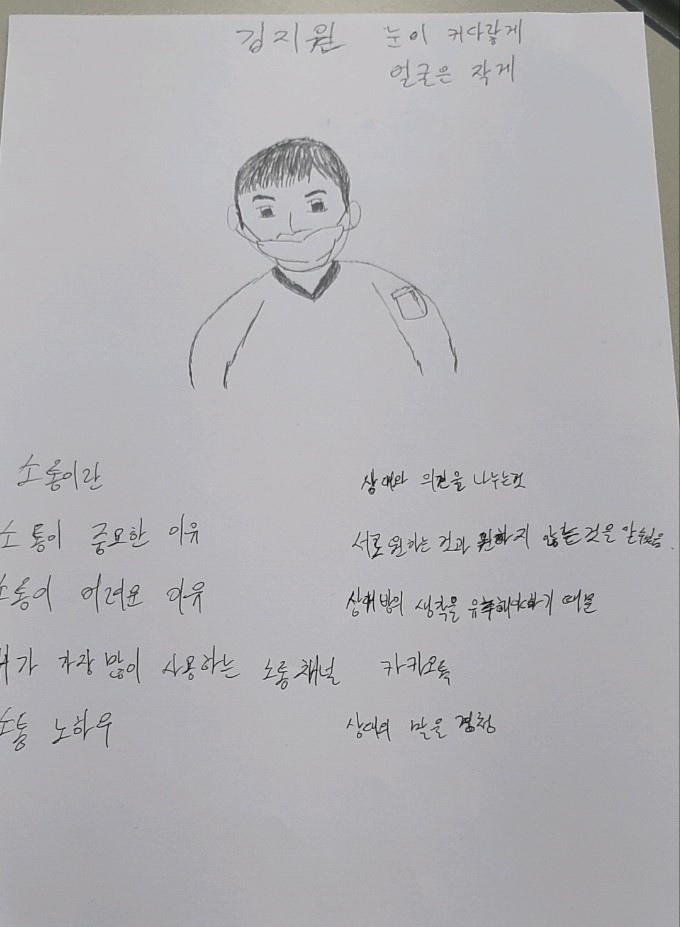 김지원 눈이 커다랗게
얼굴은 작게
소통이란 상대와 의견을 나누는것
소통이 중요한 이유 서로 원하는 것과 원하지 않는 것을 알 수 있음.
소통이 어려운 이유 상대방의 생각을 유추해야하기 때문
내가 가장 많이 사용하는 소통 채널 카카오톡
소통 노하우 상대의 말을 경청